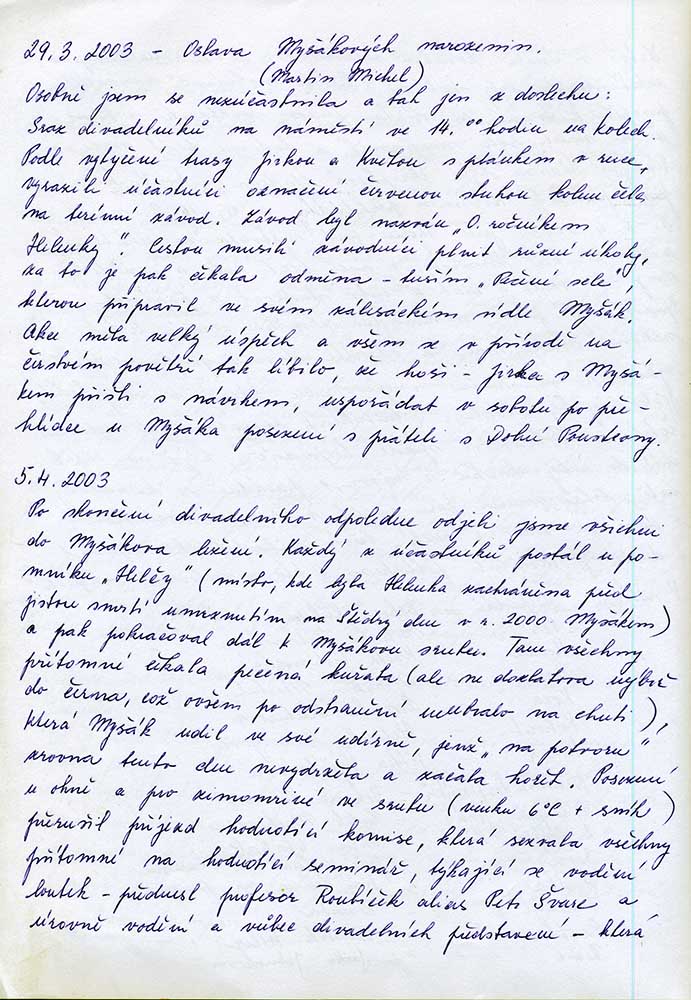 29.3.2003 – Oslava Myšákových narozenin.
(Martin Michel)
Osobně jsem se nezúčastnila a tak jen z doslechu:
Sraz divadelníků na náměstí ve 14.00 hodin na kolech.
Podle vytyčené trasy Jirkou a Květou s plánkem v ruce,
vyrazili účastníci označeni červenou stuhou kolem čela,
na terénní závod. Závod byl nazván „0. ročníkem
Helenky". Cestou museli závodníci plnit různé úkoly,
za to je pak čekala odměna – tuším „Pečené sele",
kterou připravil ve svém zálesáckém sídle Myšák.
Akce měla velký úspěch a všem se v přírodě na
čerstvém povětří tak líbilo, že hoši – Jirka s Myšá-
kem přišli s návrhem, uspořádat v sobotu po pře-
hlídce u Myšáka posezení s přáteli s Dolní Poustevny.
5.4.2003
Po skončení divadelního odpoledne odjeli jsme všichni
do Myšákova ležení. Každý z účastníků postál u po-
mníku „Helčy" (místo, kde byla Helenka zachráněna před
jistou smrtí umrznutím na Štědrý den v r. 2000 Myšákem)
a pak pokračoval dál k Myšákovu srubu. Tam všechny
přítomné čekala pečená kuřata (ale ne dozlatova nýbrž
do černa, což ovšem po odstranění neubralo na chuti),
která Myšák udil ve své udírně, jenž „na potvoru"
zrovna tento den nevydržela a začala hořet. Posezení
u ohně a pro zimomřivé ve srubu (venku 6°C + sníh)
přerušil příjezd hodnotící komise, která sezvala všechny
přítomné na hodnotící seminář, týkající se vodění
loutek – přednesl profesor Roubíček alias Petr Švarc a
úrovně vodění a vůbec divadelních představení – která